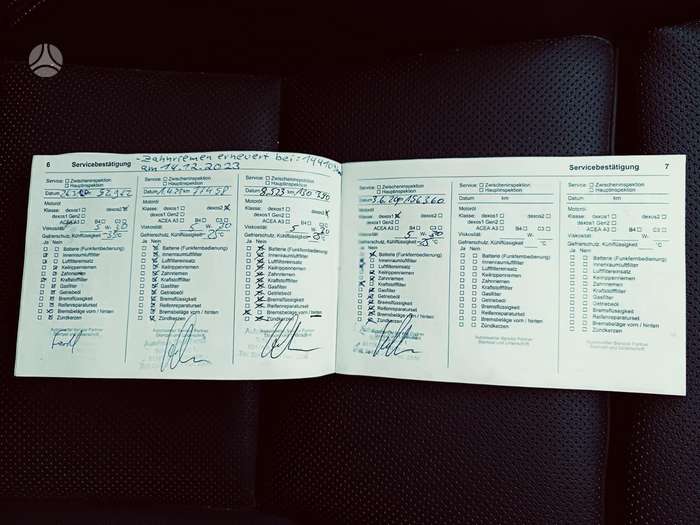 6 Servicebestätigung
-Zahnriemen erneuert bei:
am 14.12.2023
Service: Zwischeninspektion
Hauptinspektion
Datum km
Motoröl
Klasse: dexos1 dexos2
dexos1 Gen2
ACEA A3 B4 C3
Viskosität 5 W- 30
Gefrierschutz, Kühlflüssigkeit °C
Ja Nein
Batterie (Funkfernbedienung)
Innenraumluftfilter
Luftfiltereinsatz
Keilrippenriemen
Zahnriemen
Kraftstofffilter
Gasfilter
Getriebeöl
Bremsflüssigkeit
Reifenreparaturset
Bremsbeläge vorn / hinten
Zündkerzen
Autorisierter Service Partner
Stempel und Unterschrift
Service: Zwischeninspektion
Hauptinspektion
Datum km
Motoröl
Klasse: dexos1 dexos2
dexos1 Gen2
ACEA A3 B4 C3
Viskosität 5 W- 30
Gefrierschutz, Kühlflüssigkeit °C
Ja Nein
Batterie (Funkfernbedienung)
Innenraumluftfilter
Luftfiltereinsatz
Keilrippenriemen
Zahnriemen
Kraftstofffilter
Gasfilter
Getriebeöl
Bremsflüssigkeit
Reifenreparaturset
Bremsbeläge vorn / hinten
Zündkerzen
Service: Zwischeninspektion
Hauptinspektion
Datum 8.5.23 km 130
Motoröl
Klasse: dexos1 dexos2
dexos1 Gen2
ACEA A3 B4 C3
Viskosität 5 W- 30
Gefrierschutz, Kühlflüssigkeit °C
Ja Nein
Batterie (Funkfernbedienung)
Innenraumluftfilter
Luftfiltereinsatz
Keilrippenriemen
Zahnriemen
Kraftstofffilter
Gasfilter
Getriebeöl
Bremsflüssigkeit
Reifenreparaturset
Bremsbeläge vorn / hinten
Zündkerzen
Servicebestätigung 7
Service: Zwischeninspektion
Hauptinspektion
Datum km 156360
Motoröl
Klasse: dexos1 dexos2
dexos1 Gen2
ACEA A3 B4 C3
Viskosität 5 W- 30
Gefrierschutz, Kühlflüssigkeit °C
Ja Nein
Batterie (Funkfernbedienung)
Innenraumluftfilter
Luftfiltereinsatz
Keilrippenriemen
Zahnriemen
Kraftstofffilter
Gasfilter
Getriebeöl
Bremsflüssigkeit
Reifenreparaturset
Bremsbeläge vorn / hinten
Zündkerzen
Service: Zwischeninspektion
Hauptinspektion
Datum km
Motoröl
Klasse: dexos1 dexos2
dexos1 Gen2
ACEA A3 B4 C3
Viskosität W-
Gefrierschutz, Kühlflüssigkeit °C
Ja Nein
Batterie (Funkfernbedienung)
Innenraumluftfilter
Luftfiltereinsatz
Keilrippenriemen
Zahnriemen
Kraftstofffilter
Gasfilter
Getriebeöl
Bremsflüssigkeit
Reifenreparaturset
Bremsbeläge vorn / hinten
Zündkerzen
Autorisierter Service Partner
Stempel und Unterschrift
Service: Zwischeninspektion
Hauptinspektion
Datum km
Motoröl
Klasse: dexos1 dexos2
dexos1 Gen2
ACEA A3 B4 C3
Viskosität W-
Gefrierschutz, Kühlflüssigkeit °C
Ja Nein
Batterie (Funkfernbedienung)
Innenraumluftfilter
Luftfiltereinsatz
Keilrippenriemen
Zahnriemen
Kraftstofffilter
Gasfilter
Getriebeöl
Bremsflüssigkeit
Reifenreparaturset
Bremsbeläge vorn / hinten
Zündkerzen
Autorisierter Service Partner
Stempel und Unterschrift